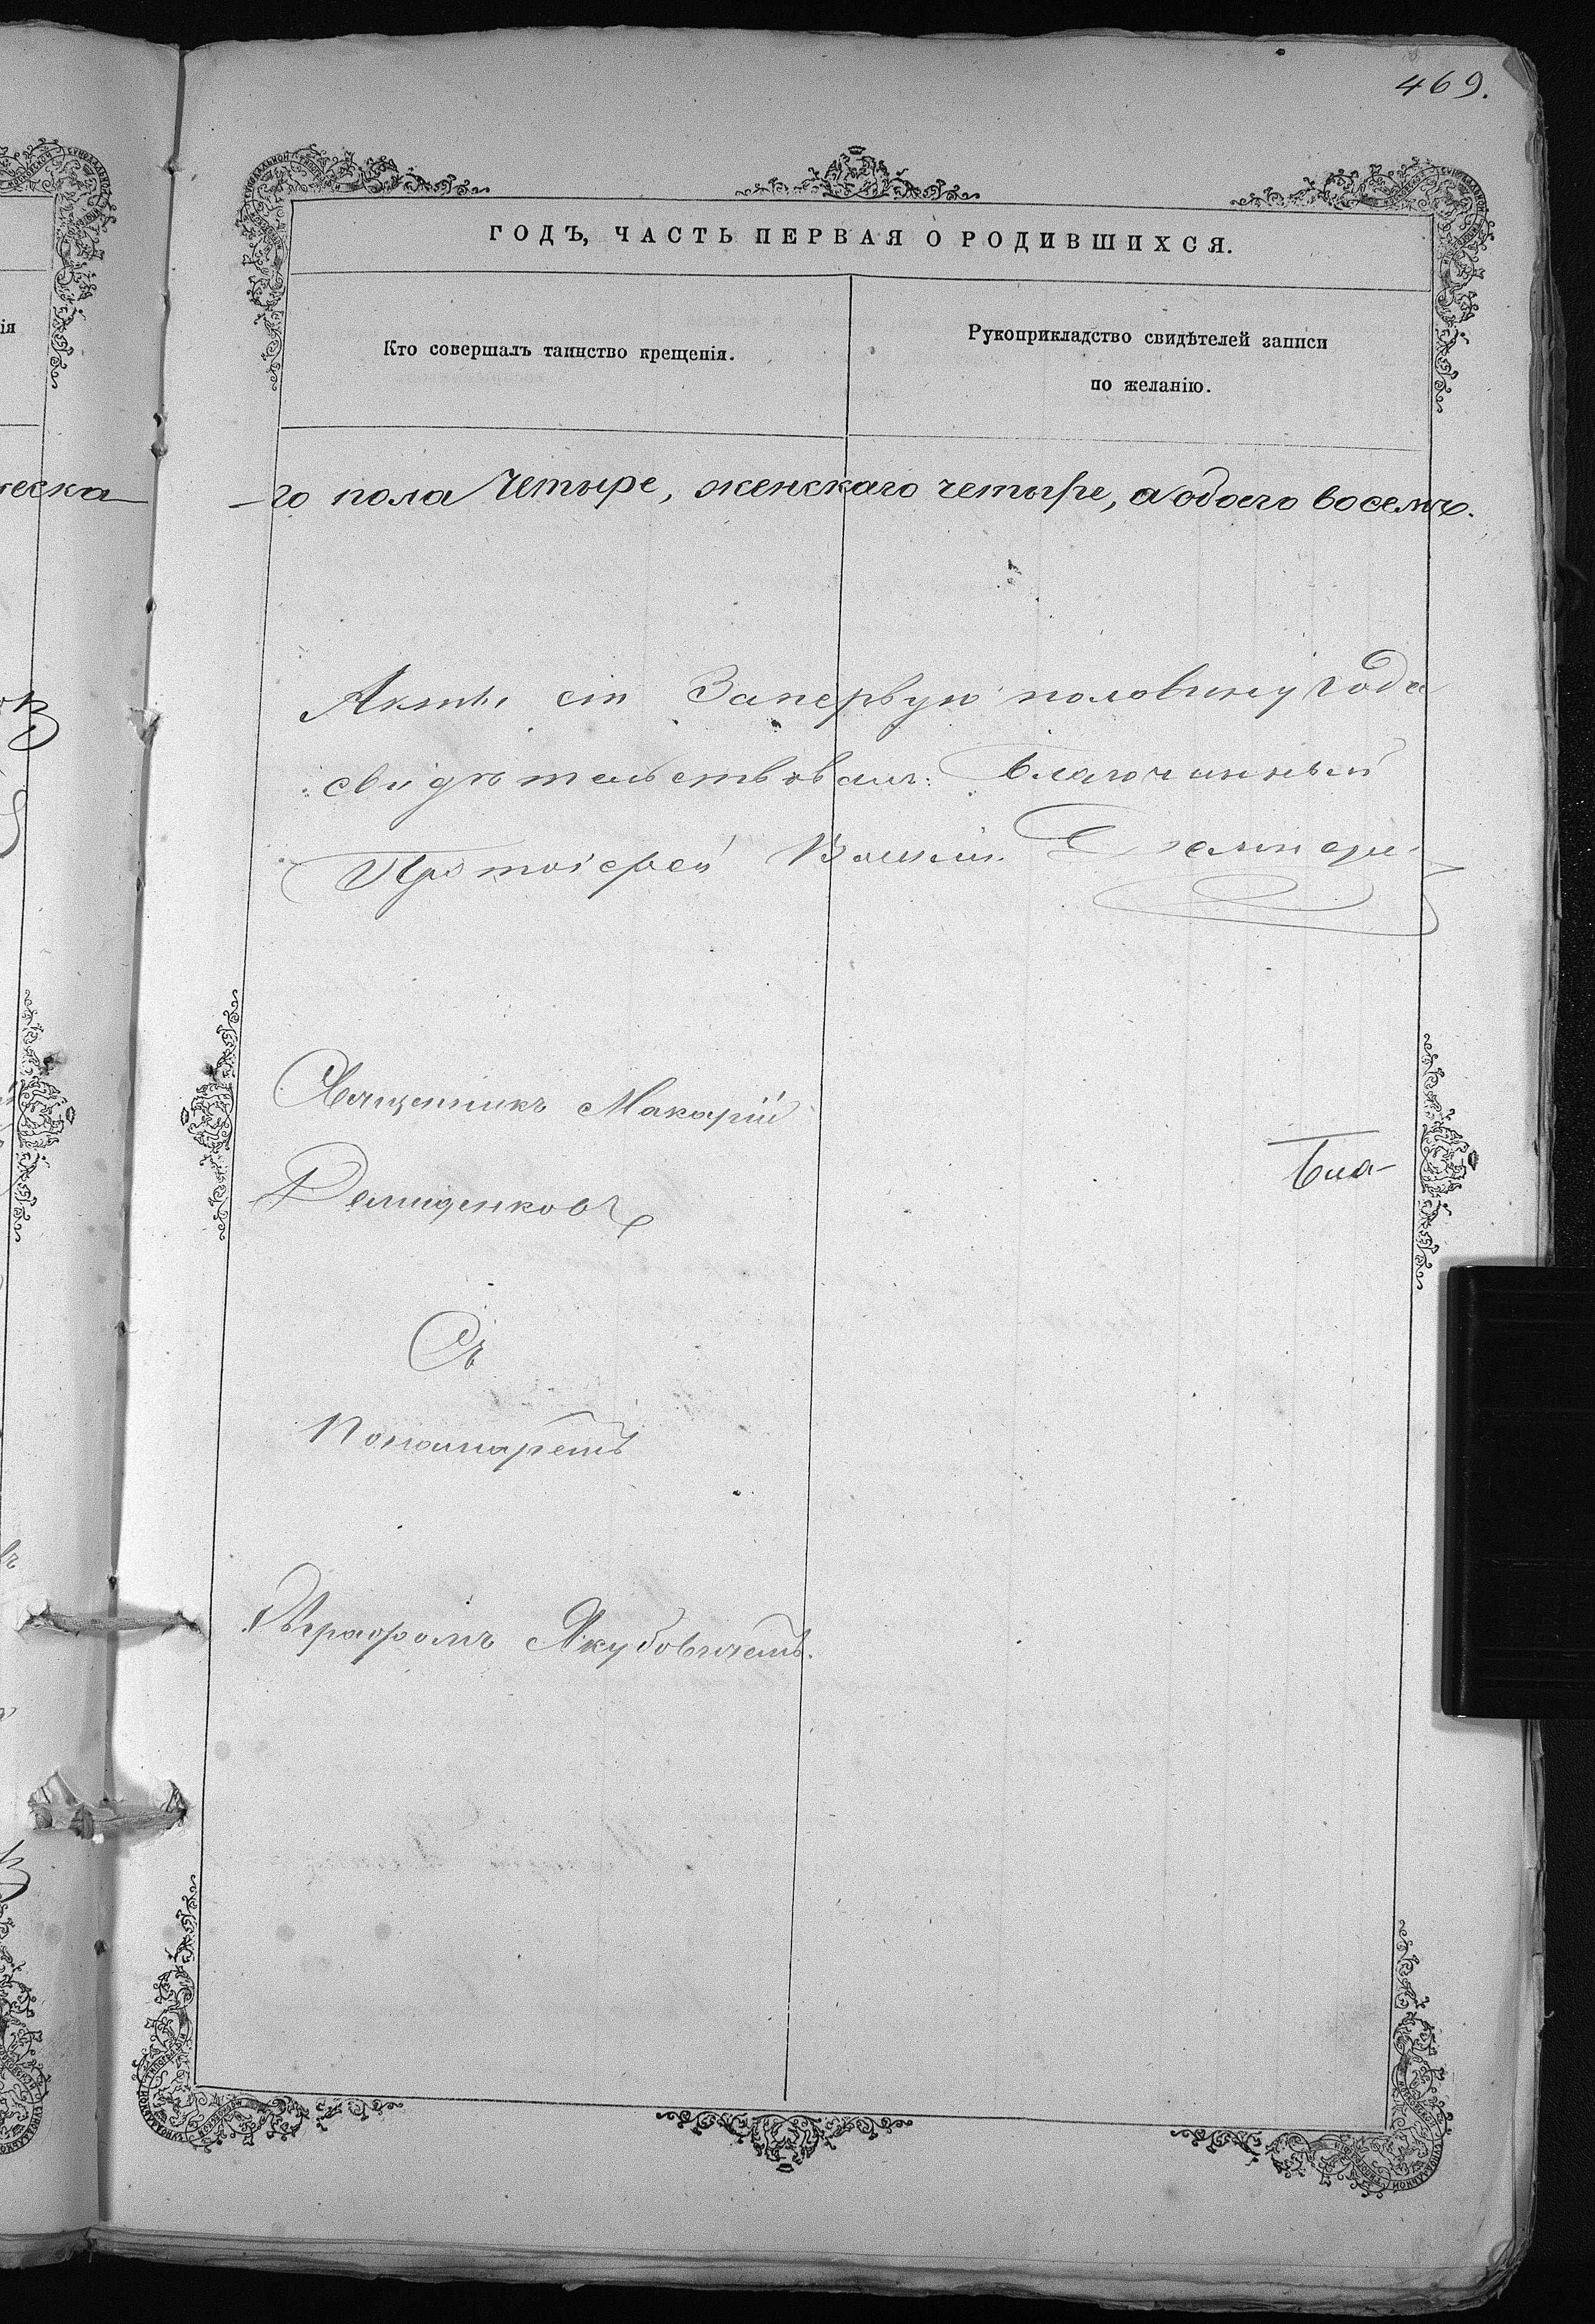 469.
ГОДЪ, ЧАСТЬ ПЕРВАЯ О РОДИВШИХСЯ.
Кто совершалъ таинство крещенія.
Рукоприкладство свидѣтелей записи
по желанію.
ческа-
-го пола четыре, женскаго четыре, а обоего восемь.
Акты сіи За первую половину года
свидѣтельствовалъ: Благочинный
Протоіерей
Священникъ Макарій
Демиденковъ
Бла-
Съ
Пономаремъ
Ѣфраφомъ Якубовичемъ.